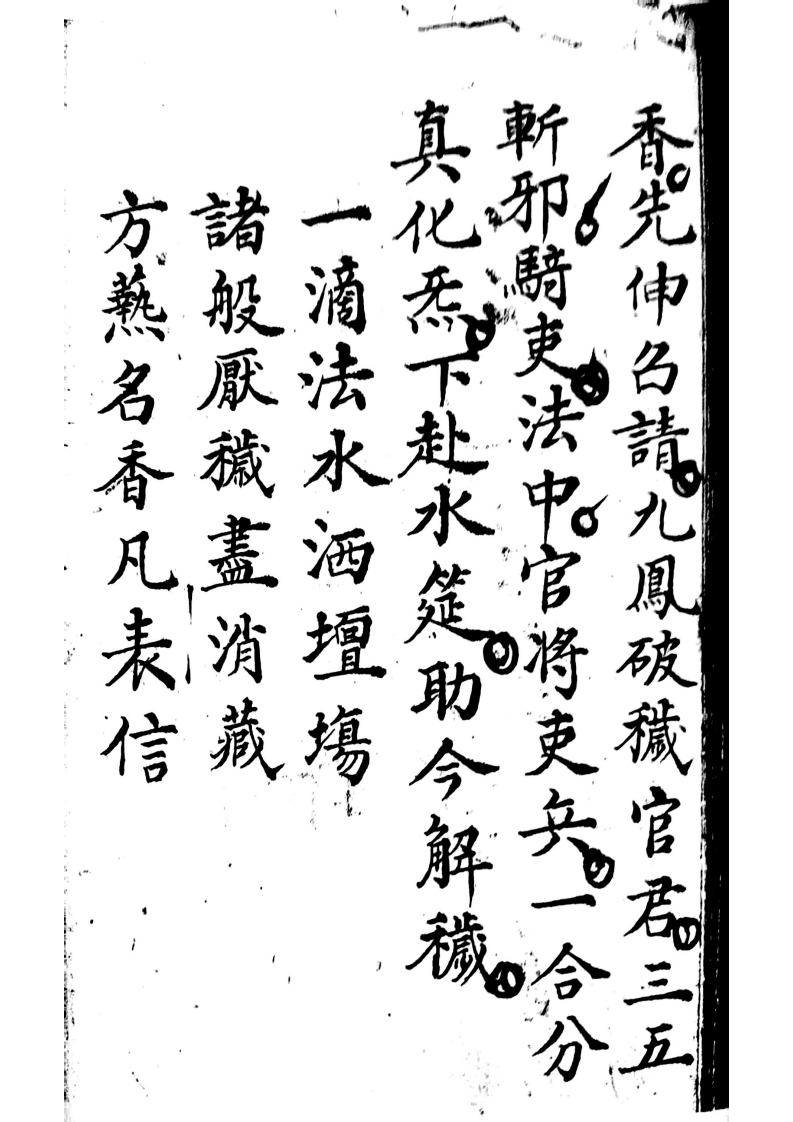 香先伸召請九鳳破穢官君三五
斬邪騎吏法中官將吏兵一合分
真化炁下赴水筵助今解穢
一滴法水洒壇塲
諸般厭穢盡消藏
方爇名香凡表信